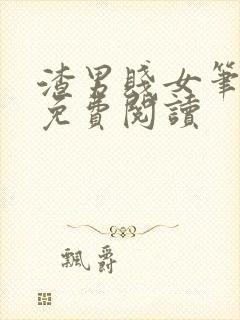 渣男賤女筆
免費閱讀
飄爵